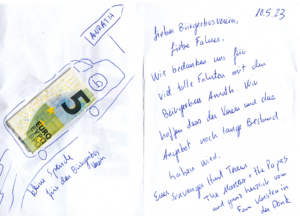 ANRATH
5
EURO
Kleine Spende
für den Bürgerbus
Verein
10.5.23
Lieber Bürgerbusverein,
liebe Fahrer,
Wir bedanken uns für
viel tolle Fahrten mit dem
Bürgerbus Anrath. Wir
hoffen dass der Verein und das
Angebot noch lange Bestand
haben wird.
Euer Scavenger Hunt Team
The
the Popes
und ganz herzlich von
Fam